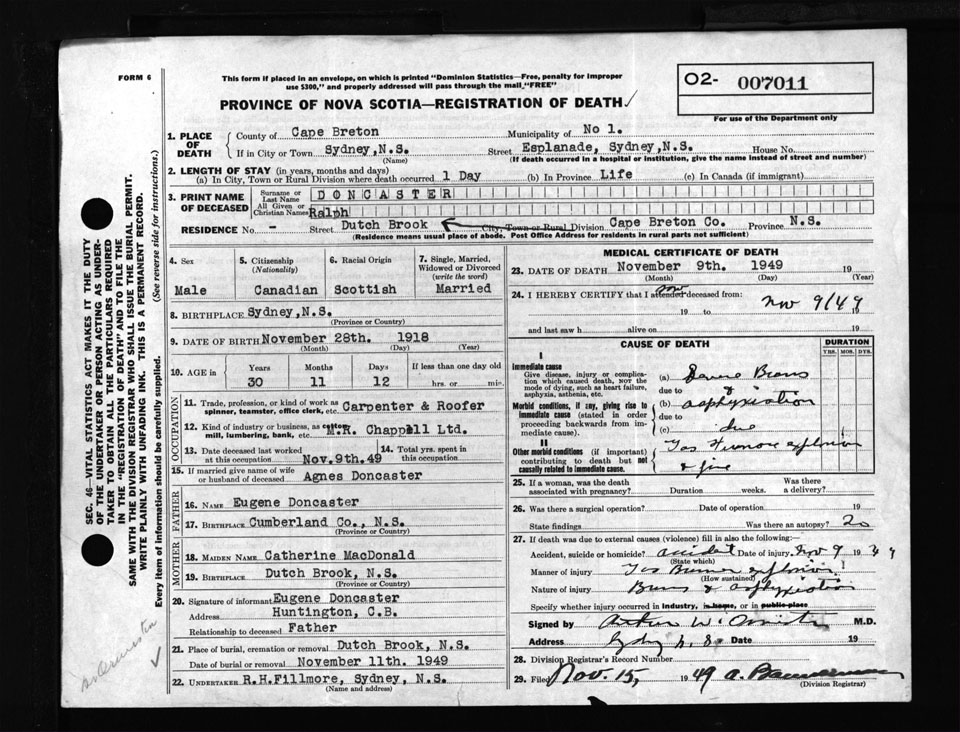 FORM 6
This form if placed in an envelope, on which is printed "Dominion Statistics—Free, penalty for improper
use $300," and properly addressed will pass through the mail "FREE"
PROVINCE OF NOVA SCOTIA—REGISTRATION OF DEATH ✓
02- 007011
For use of the Department only
SEC. 46—VITAL STATISTICS ACT MAKES IT THE DUTY
OF THE UNDERTAKER OR PERSON ACTING AS UNDER-
TAKER TO OBTAIN ALL THE PARTICULARS REQUIRED
IN THE "REGISTRATION OF DEATH" AND TO FILE THE
SAME WITH THE DIVISION REGISTRAR WHO SHALL ISSUE THE BURIAL PERMIT.
WRITE PLAINLY WITH UNFADING INK. THIS IS A PERMANENT RECORD.
Every item of information should be carefully supplied. (See reverse side for instructions.)
1. PLACE OF DEATH
County of Cape Breton Municipality of No 1.
If in City or Town Sydney,N.S. Street Esplanade, Sydney,N.S. House No.
(Name) (If death occurred in a hospital or institution, give the name instead of street and number)
2. LENGTH OF STAY (in years, months and days)
(a) In City, Town or Rural Division where death occurred 1 Day (b) In Province Life (c) In Canada (if immigrant)
3. PRINT NAME OF DECEASED
Surname or Last Name DONCASTER
All Given or Christian Names Ralph
RESIDENCE No. - Street Dutch Brook City, Town or Rural Division Cape Breton Co. Province N.S.
(Residence means usual place of abode. Post Office Address for residents in rural parts not sufficient)
4. Sex
Male
5. Citizenship (Nationality)
Canadian
6. Racial Origin
Scottish
7. Single, Married, Widowed or Divorced (write the word)
Married
8. BIRTHPLACE Sydney,N.S.
(Province or Country)
9. DATE OF BIRTH November 28th. 1918
(Month) (Day) (Year)
10. AGE in Years Months Days If less than one day old
30 11 12 hrs. or min.
OCCUPATION
11. Trade, profession, or kind of work as
spinner, teamster, office clerk, etc. Carpenter & Roofer
12. Kind of industry or business, as cotton
mill, lumbering, bank, etc. M.R. Chappell Ltd.
13. Date deceased last worked
at this occupation Nov.9th.49
14. Total yrs. spent in
this occupation
15. If married give name of wife
or husband of deceased Agnes Doncaster
FATHER
16. NAME Eugene Doncaster
17. BIRTHPLACE Cumberland Co., N.S.
(Province or Country)
MOTHER
18. MAIDEN NAME Catherine MacDonald
19. BIRTHPLACE Dutch Brook, N.S.
(Province or Country)
20. Signature of informant Eugene Doncaster
Address Huntington, C.B.
Relationship to deceased Father
21. Place of burial, cremation or removal Dutch Brook, N.S.
Date of burial or removal November 11th. 1949
22. UNDERTAKER R.H.Fillmore, Sydney, N.S.
(Name and address)
MEDICAL CERTIFICATE OF DEATH
23. DATE OF DEATH November 9th. 1949 19
(Month) (Day) (Year)
24. I HEREBY CERTIFY that I attended deceased from:
19 to Nov 9/49
and last saw h alive on 19
CAUSE OF DEATH
DURATION
YRS. MOS. DYS.
I
Immediate cause
Give disease, injury or complica-
tion which caused death, NOT the
mode of dying, such as heart failure,
asphyxia, asthenia, etc.
(a) Severe Burns
due to &
Morbid conditions, if any, giving rise to
immediate cause (stated in order
proceeding backwards from im-
mediate cause).
(b) asphyxiation
due to
(c) due
II
Other morbid conditions (if important)
contributing to death but not
causally related to immediate cause.
Gas Furnace explosion
& fire
25. If a woman, was the death
associated with pregnancy? Duration weeks. Was there a delivery?
26. Was there a surgical operation? Date of operation 19
State findings Was there an autopsy? No
27. If death was due to external causes (violence) fill in also the following:—
Accident, suicide or homicide? accident Date of injury Nov 9 1949
(State which)
Manner of injury Gas Burner explosion
(How sustained)
Nature of injury Burns & asphyxiation
Specify whether injury occurred in industry, in home, or in public place
Signed by M.D.
Address Sydney N.S. Date 19
28. Division Registrar's Record Number
29. Filed Nov. 15, 1949
(Division Registrar)